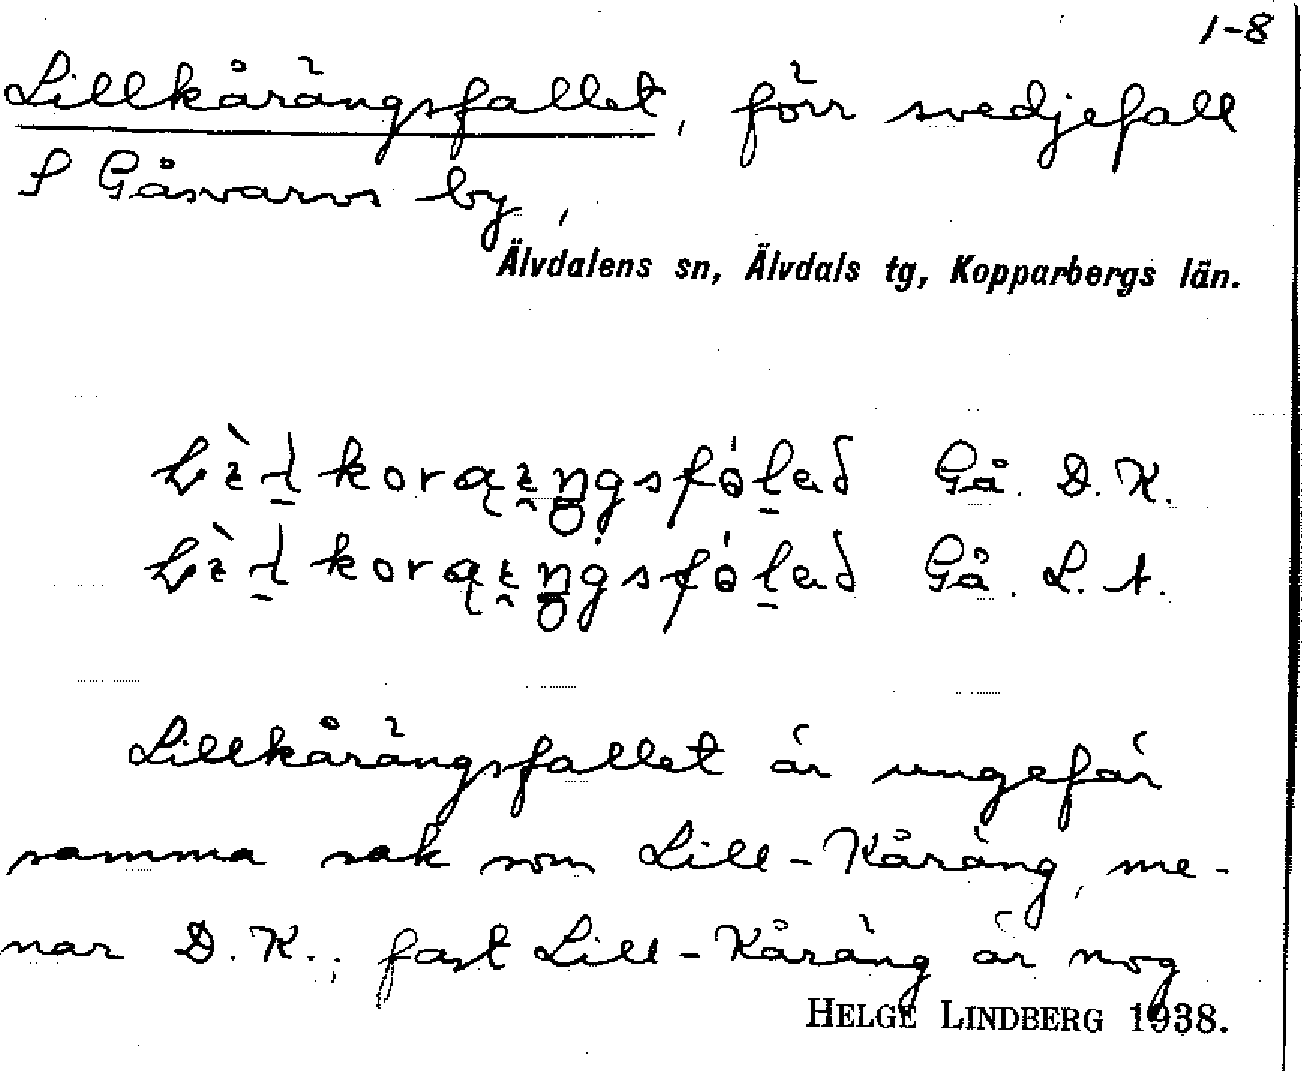 1-8
Lillkårängsfallet, förr svedjefall
S Gåsvarvs by,
Älvdalens sn, Älvdals tg, Kopparbergs län.
Gå. D. K.
Gå. L. A.
Lillkårängsfallet är ungefär
samma sak som Lill-Kåräng, me-
nar D. K., fast Lill-Kåräng är nog
HELGE LINDBERG 1938.